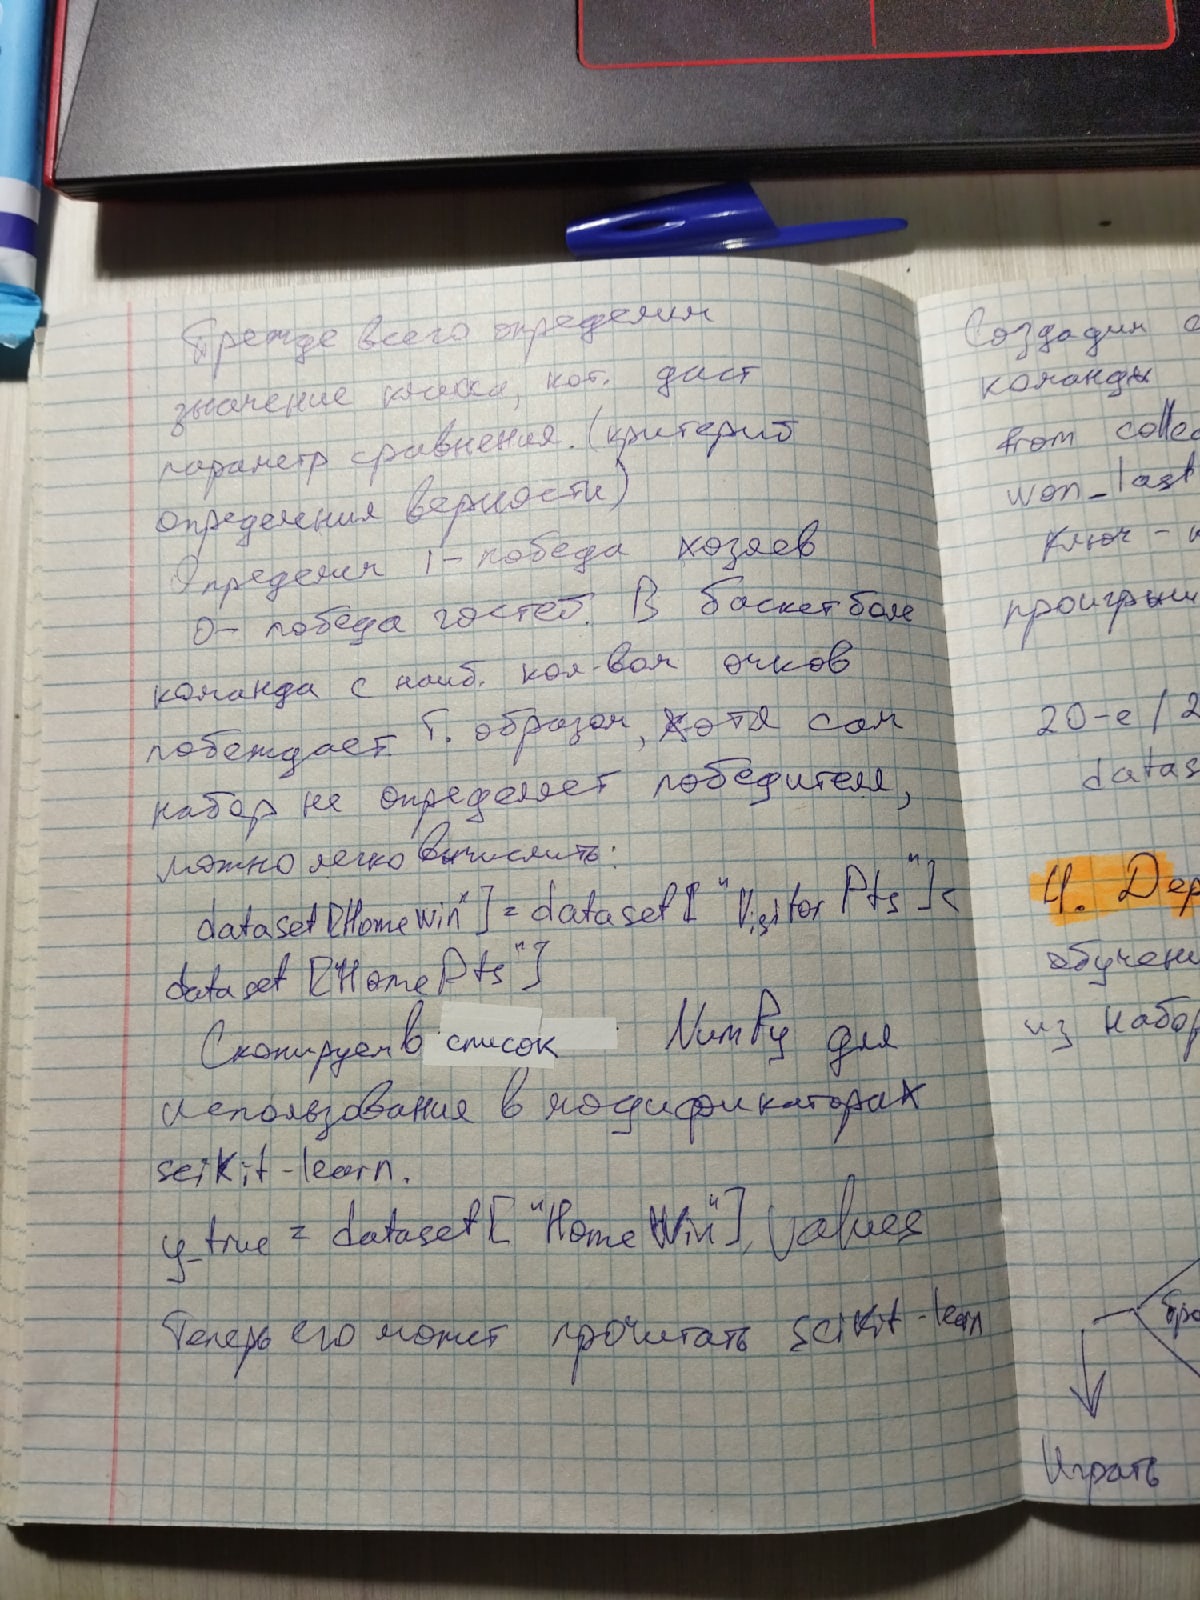 Прежде всего определим
значение класса, кот. даст
параметр сравнения. (критерий
определения верности)
Определим 1 - победа хозяев
0 - победа гостей. В баскетболе
команда с наиб. кол-вом очков
побеждает. Т. образом, хотя сам
набор не определяет победителя,
можно легко вычислить:
dataset["HomeWin"] = dataset["VisitorPts"] <
dataset["HomePts"]
Скопируем в список NumPy для
использования в модификаторах
scikit-learn.
y_true = dataset["HomeWin"].values
Теперь его может прочитать scikit-learn
Создадим
команды
from
won_last
ключ -
20-е / 2
4.
из
Играть